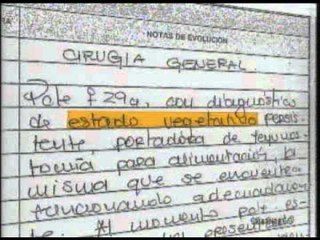 NOTAS DE EVOLUCIÓN
CIRUGÍA GENERAL
Pate f 29a, con diagnóstico
de estado vegetativo persis
tente portadora de yeyunos
tomía para alimentación, la
misma que se encuentra
funcionando adecuadamen
te. Al momento pct es